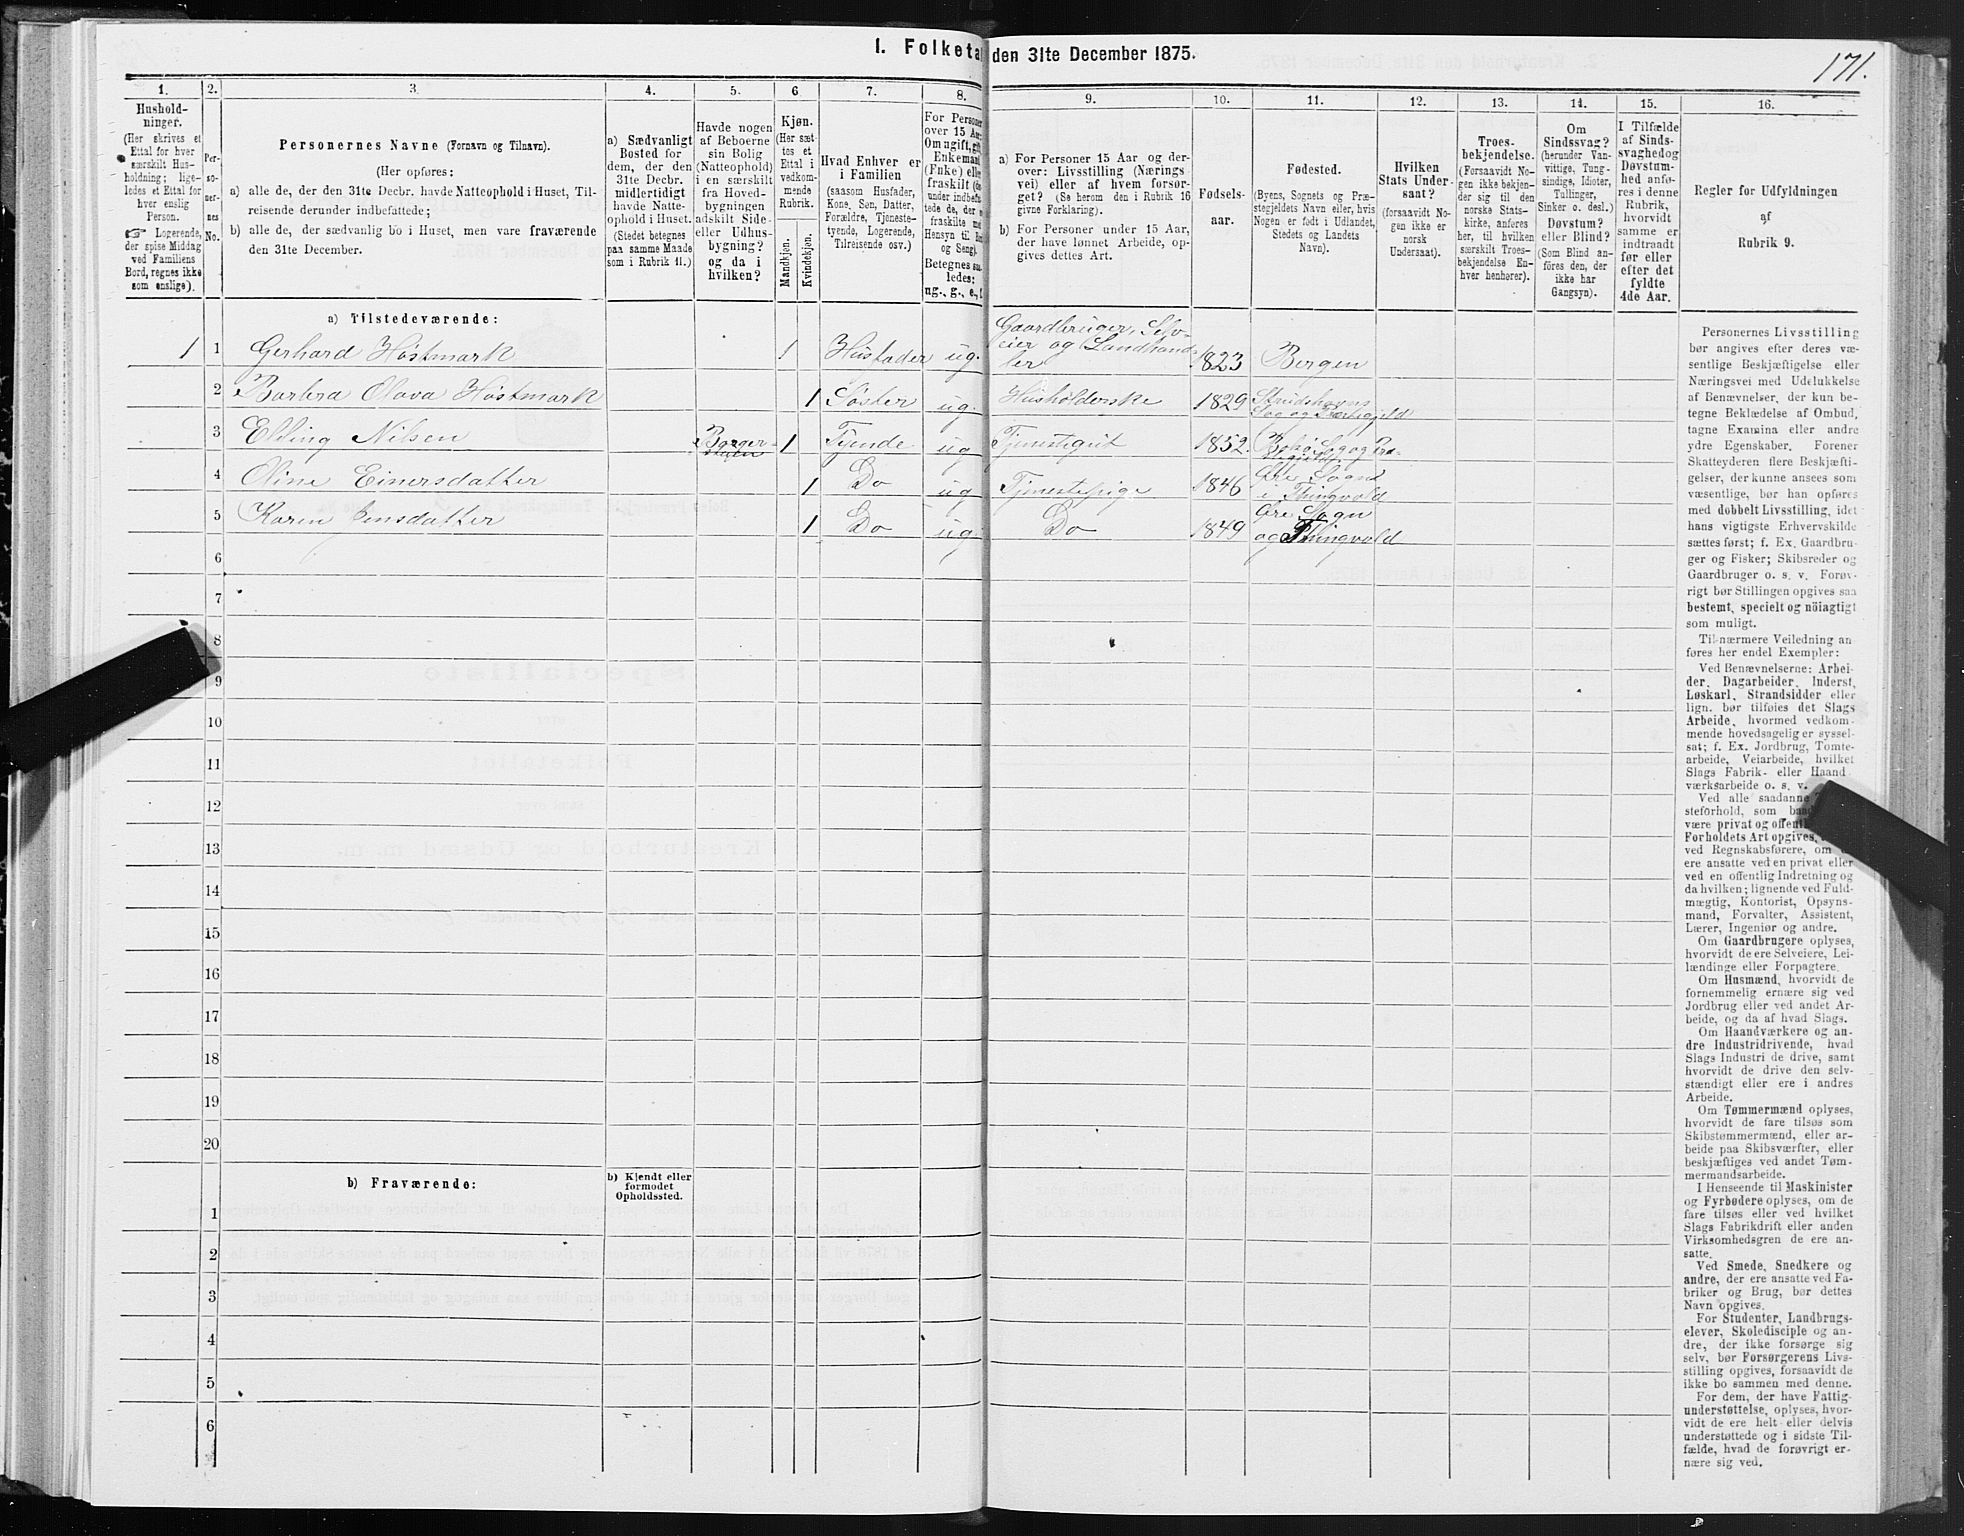 I. Folketa den 31te December 1875.
171.
1.
Hushold-
ninger.
(Her skrives et
Ettal for hver
særskilt Hus-
holdning; lige-
ledes et Ettal for
hver enslig
Person.
☞ Logerende,
der spise Middag
ved Familiens
Bord, regnes ikke
som enslige).
2.
Per-
so-
ner-
nes
No.
3.
Personernes Navne (Fornavn og Tilnavn).
(Her opføres:
a) alle de, der den 31te Decbr. havde Natteophold i Huset, Til-
reisende derunder indbefattede;
b) alle de, der sædvanlig bo i Huset, men vare fraværende
den 31te December.
4.
a) Sædvanligt
Bosted for
dem, der den
31te Decbr.
midlertidigt
havde Natte-
ophold i Huset.
(Stedet betegnes
paa samme Maade
som i Rubrik 11.)
5.
Havde nogen
af Beboerne
sin Bolig
(Natteophold)
i en særskilt
fra Hoved-
bygningen
adskilt Side-
eller Udhus-
bygning?
og da i
hvilken?
6
Kjøn.
(Her sæt-
tes et
Ettal i
vedkom-
mende
Rubrik.
Mandkjøn.
Kvindekjøn.
7.
Hvad Enhver er
i Familien
(saasom Husfader,
Kone, Søn, Datter,
Forældre, Tjeneste-
tyende, Logerende,
Tilreisende osv.)
8.
For Persone
over 15 Aar
Om ugift, gift
Enkemand
(Enke) elle
fraskilt
Betegnes saa-
ledes:
ug., g., e.,
9.
a) For Personer 15 Aar og der-
over: Livsstilling (Nærings
vei) eller af hvem forsør-
get? (Se herom den i Rubrik 16
givne Forklaring).
b) For Personer under 15 Aar,
der have lønnet Arbeide, op-
gives dettes Art.
10.
Fødsels-
aar.
11.
Fødested.
(Byens, Sognets og Præ-
stegjeldets Navn eller, hvis
Nogen er født i Udlandet,
Stedets og Landets
Navn).
12.
Hvilken
Stats Under-
saat?
(forsaavidt No-
gen ikke er
norsk
Undersaat).
13.
Troes-
bekjendelse.
(Forsaavidt No-
gen ikke bekjen-
der sig til den
norske Stats-
kirke, anføres
her, til hvilken
særskilt Troes-
bekjendelse En-
hver henhører).
14.
Om
Sindssvag?
(herunder Van-
vittige, Tung-
sindige, Idioter,
Tullinger,
Sinker o. desl.)
Døvstum?
eller Blind?
(Som Blind an-
føres den, der
ikke har
Gangsyn).
15.
I Tilfælde
af Sinds-
svaghed og
Døvstum-
hed anfø-
res i denne
Rubrik,
hvorvidt
samme er
indtraadt
før eller
efter det
fyldte
4de Aar.
16.
Regler for Udfyldningen
af
Rubrik 9.
a) Tilstedeværende:
1 1 Gerhard Hostmark 1 Husfader ug. Gaardbruger, Selv-
eier og Landhand-
ler 1823 Bergen
2 Barbra Olava Hostmark 1 Søster ug. Husholderske 1829
Sog og Præstegjeld
3 Elling Nilsen Borger-
stuen 1 Tjende ug Tjenestegut 1852 Bolsø Sog og Præ-
4 Oline Einersdatter 1 Do ug Tjenestepige 1846 Øre Sogn
i Thingvold
5 Karen Jensdatter 1 Do ug. Do 1849 Øre Sogn
og Thingvold
6
7
8
9
10
11
12
13
14
15
16
17
18
19
20
b) Fraværende:
b) Kjendt eller
formodet
Opholdssted.
1
2
3
4
5
6
Personernes Livsstilling
bør angives efter deres væ-
sentlige Beskjæftigelse eller
Næringsvei med Udelukkelse
af Benævnelser, der kun be-
tegne Beklædelse af Ombud,
tagne Examina eller andre
ydre Egenskaber. Forener
Skatteyderen flere Beskjæfti-
gelser, der kunne ansees som
væsentlige, bør han opføres
med dobbelt Livsstilling, idet
hans vigtigste Erhvervskilde
sættes først; f. Ex. Gaardbru-
ger og Fisker; Skibsreder og
Gaardbruger o. s. v. Forøv-
rigt bør Stillingen opgives saa
bestemt, specielt og nöiagtigt
som muligt.
Til nærmere Veiledning an
føres her endel Exempler:
Ved Benævnelserne: Arbei-
der, Dagarbeider, Inderst,
Løskarl, Strandsidder eller
lign. bør tilføies det Slags
Arbeide, hvormed vedkom-
mende hovedsagelig er syssel-
sat; f. Ex. Jordbrug, Tomte-
arbeide, Veiarbeide, hvilket
Slags Fabrik- eller Haand
værksarbeide o. s. v.
Ved alle saadanne
steforhold, som
være privat og
Forholdets Art opgives,
ved Regnskabsførere, om
ere ansatte ved en privat eller
ved en offentlig Indretning og
da hvilken; lignende ved Fuld-
mægtig, Kontorist, Opsyns-
mand, Forvalter, Assistent,
Lærer, Ingeniør og andre.
Om Gaardbrugere oplyses,
hvorvidt de ere Selveiere, Lei-
lændinge eller Forpagtere.
Om Husmænd, hvorvidt de
fornemmelig ernære sig ved
Jordbrug eller ved andet Ar-
beide, og da af hvad Slags.
Om Haandværkere og an-
dre Industridrivende, hvad
Slags Industri de drive, samt
hvorvidt de drive den selv-
stændigt eller ere i andres
Arbeide.
Om Tømmermænd oplyses,
hvorvidt de fare tilsøs som
Skibstømmermænd, eller ar-
beide paa Skibsværfter, eller
beskjæftiges ved andet Tøm-
mermandsarbeide.
I Henseende til Maskinister
og Fyrbødere oplyses, om de
fare tilsøs eller ved hvilket
Slags Fabrikdrift eller anden
Virksomhedsgren de ere an-
satte.
Ved Smede, Snedkere og
andre, der ere ansatte ved Fa-
briker og Brug, bør dettes
Navn opgives.
For Studenter, Landbrugs-
elever, Skoledisciple og an-
dre, der ikke forsørge sig
selv, bør Forsørgerens Livs-
stilling opgives, forsaavidt de
ikke bo sammen med denne.
For dem, der have Fattig-
understøttelse, oplyses, hvor-
vidt de ere helt eller delvis
understøttede og i sidste Til-
fælde, hvad de forøvrigt er-
nære sig ved.